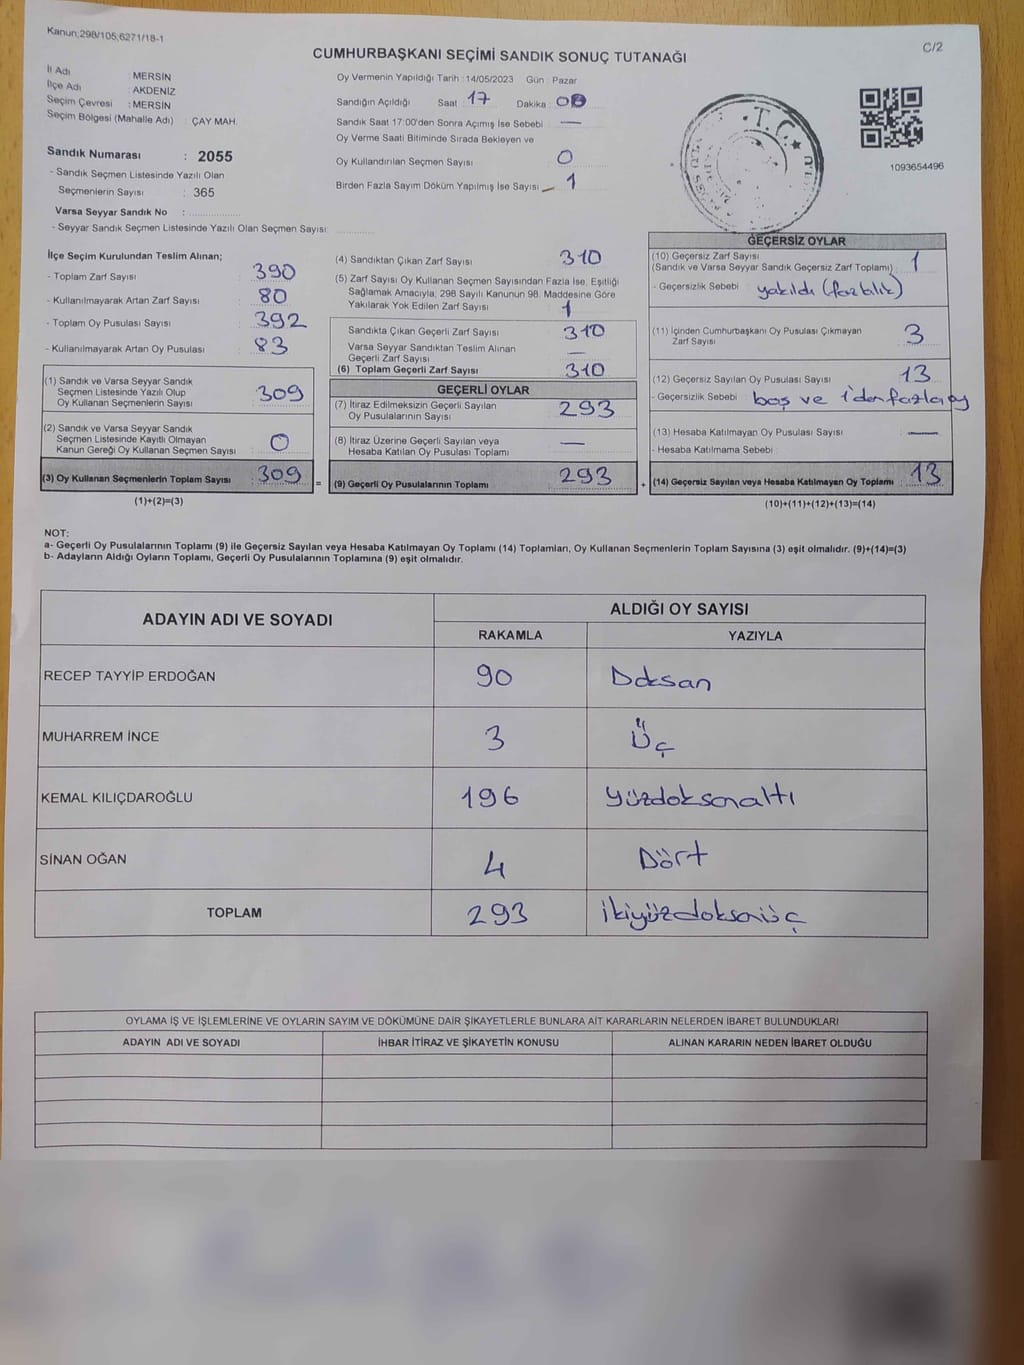 Kanun;298/105;6271/18-1
C/2
CUMHURBAŞKANI SEÇİMİ SANDIK SONUÇ TUTANAĞI
İl Adı : MERSİN
İlçe Adı : AKDENİZ
Seçim Çevresi : MERSİN
Seçim Bölgesi (Mahalle Adı) : ÇAY MAH.
Sandık Numarası : 2055
- Sandık Seçmen Listesinde Yazılı Olan
Seçmenlerin Sayısı : 365
Varsa Seyyar Sandık No :
- Seyyar Sandık Seçmen Listesinde Yazılı Olan Seçmen Sayısı:
Oy Vermenin Yapıldığı Tarih :14/05/2023 Gün : Pazar
Sandığın Açıldığı Saat : 17 Dakika : 00
Sandık Saat 17:00'den Sonra Açımış İse Sebebi : —
Oy Verme Saati Bitiminde Sırada Bekleyen ve
Oy Kullandırılan Seçmen Sayısı : 0
Birden Fazla Sayım Döküm Yapılmış İse Sayısı : 1
T.C.
1093654496
İlçe Seçim Kurulundan Teslim Alınan;
- Toplam Zarf Sayısı : 390
- Kullanılmayarak Artan Zarf Sayısı : 80
- Toplam Oy Pusulası Sayısı : 392
- Kullanılmayarak Artan Oy Pusulası : 83
(1) Sandık ve Varsa Seyyar Sandık
Seçmen Listesinde Yazılı Olup
Oy Kullanan Seçmenlerin Sayısı : 309
(2) Sandık ve Varsa Seyyar Sandık
Seçmen Listesinde Kayıtlı Olmayan
Kanun Gereği Oy Kullanan Seçmen Sayısı : 0
(3) Oy Kullanan Seçmenlerin Toplam Sayısı : 309
(1)+(2)=(3)
=
(4) Sandıktan Çıkan Zarf Sayısı : 310
(5) Zarf Sayısı Oy Kullanan Seçmen Sayısından Fazla İse, Eşitliği
Sağlamak Amacıyla, 298 Sayılı Kanunun 98. Maddesine Göre
Yakılarak Yok Edilen Zarf Sayısı : 1
Sandıkta Çıkan Geçerli Zarf Sayısı : 310
Varsa Seyyar Sandıktan Teslim Alınan
Geçerli Zarf Sayısı : —
(6) Toplam Geçerli Zarf Sayısı : 310
GEÇERLİ OYLAR
(7) İtiraz Edilmeksizin Geçerli Sayılan
Oy Pusulalarının Sayısı : 293
(8) İtiraz Üzerine Geçerli Sayılan veya
Hesaba Katılan Oy Pusulası Toplamı : —
(9) Geçerli Oy Pusulalarının Toplamı : 293
+
GEÇERSİZ OYLAR
(10) Geçersiz Zarf Sayısı
(Sandık ve Varsa Seyyar Sandık Geçersiz Zarf Toplamı) : 1
- Geçersizlik Sebebi : yakıldı (fazlalık)
(11) İçinden Cumhurbaşkanı Oy Pusulası Çıkmayan
Zarf Sayısı : 3
(12) Geçersiz Sayılan Oy Pusulası Sayısı : 13
- Geçersizlik Sebebi : boş ve 1'den fazla oy
(13) Hesaba Katılmayan Oy Pusulası Sayısı : —
- Hesaba Katılmama Sebebi :
(14) Geçersiz Sayılan veya Hesaba Katılmayan Oy Toplamı : 13
(10)+(11)+(12)+(13)=(14)
NOT:
a- Geçerli Oy Pusulalarının Toplamı (9) ile Geçersiz Sayılan veya Hesaba Katılmayan Oy Toplamı (14) Toplamları, Oy Kullanan Seçmenlerin Toplam Sayısına (3) eşit olmalıdır. (9)+(14)=(3)
b- Adayların Aldığı Oyların Toplamı, Geçerli Oy Pusulalarının Toplamına (9) eşit olmalıdır.
ADAYIN ADI VE SOYADI
ALDIĞI OY SAYISI
RAKAMLA YAZIYLA
RECEP TAYYİP ERDOĞAN 90 Doksan
MUHARREM İNCE 3 Üç
KEMAL KILIÇDAROĞLU 196 yüzdoksanaltı
SİNAN OĞAN 4 Dört
TOPLAM 293 İkiyüzdoksanüç
OYLAMA İŞ VE İŞLEMLERİNE VE OYLARIN SAYIM VE DÖKÜMÜNE DAİR ŞİKAYETLERLE BUNLARA AİT KARARLARIN NELERDEN İBARET BULUNDUKLARI
ADAYIN ADI VE SOYADI İHBAR İTİRAZ VE ŞİKAYETİN KONUSU ALINAN KARARIN NEDEN İBARET OLDUĞU